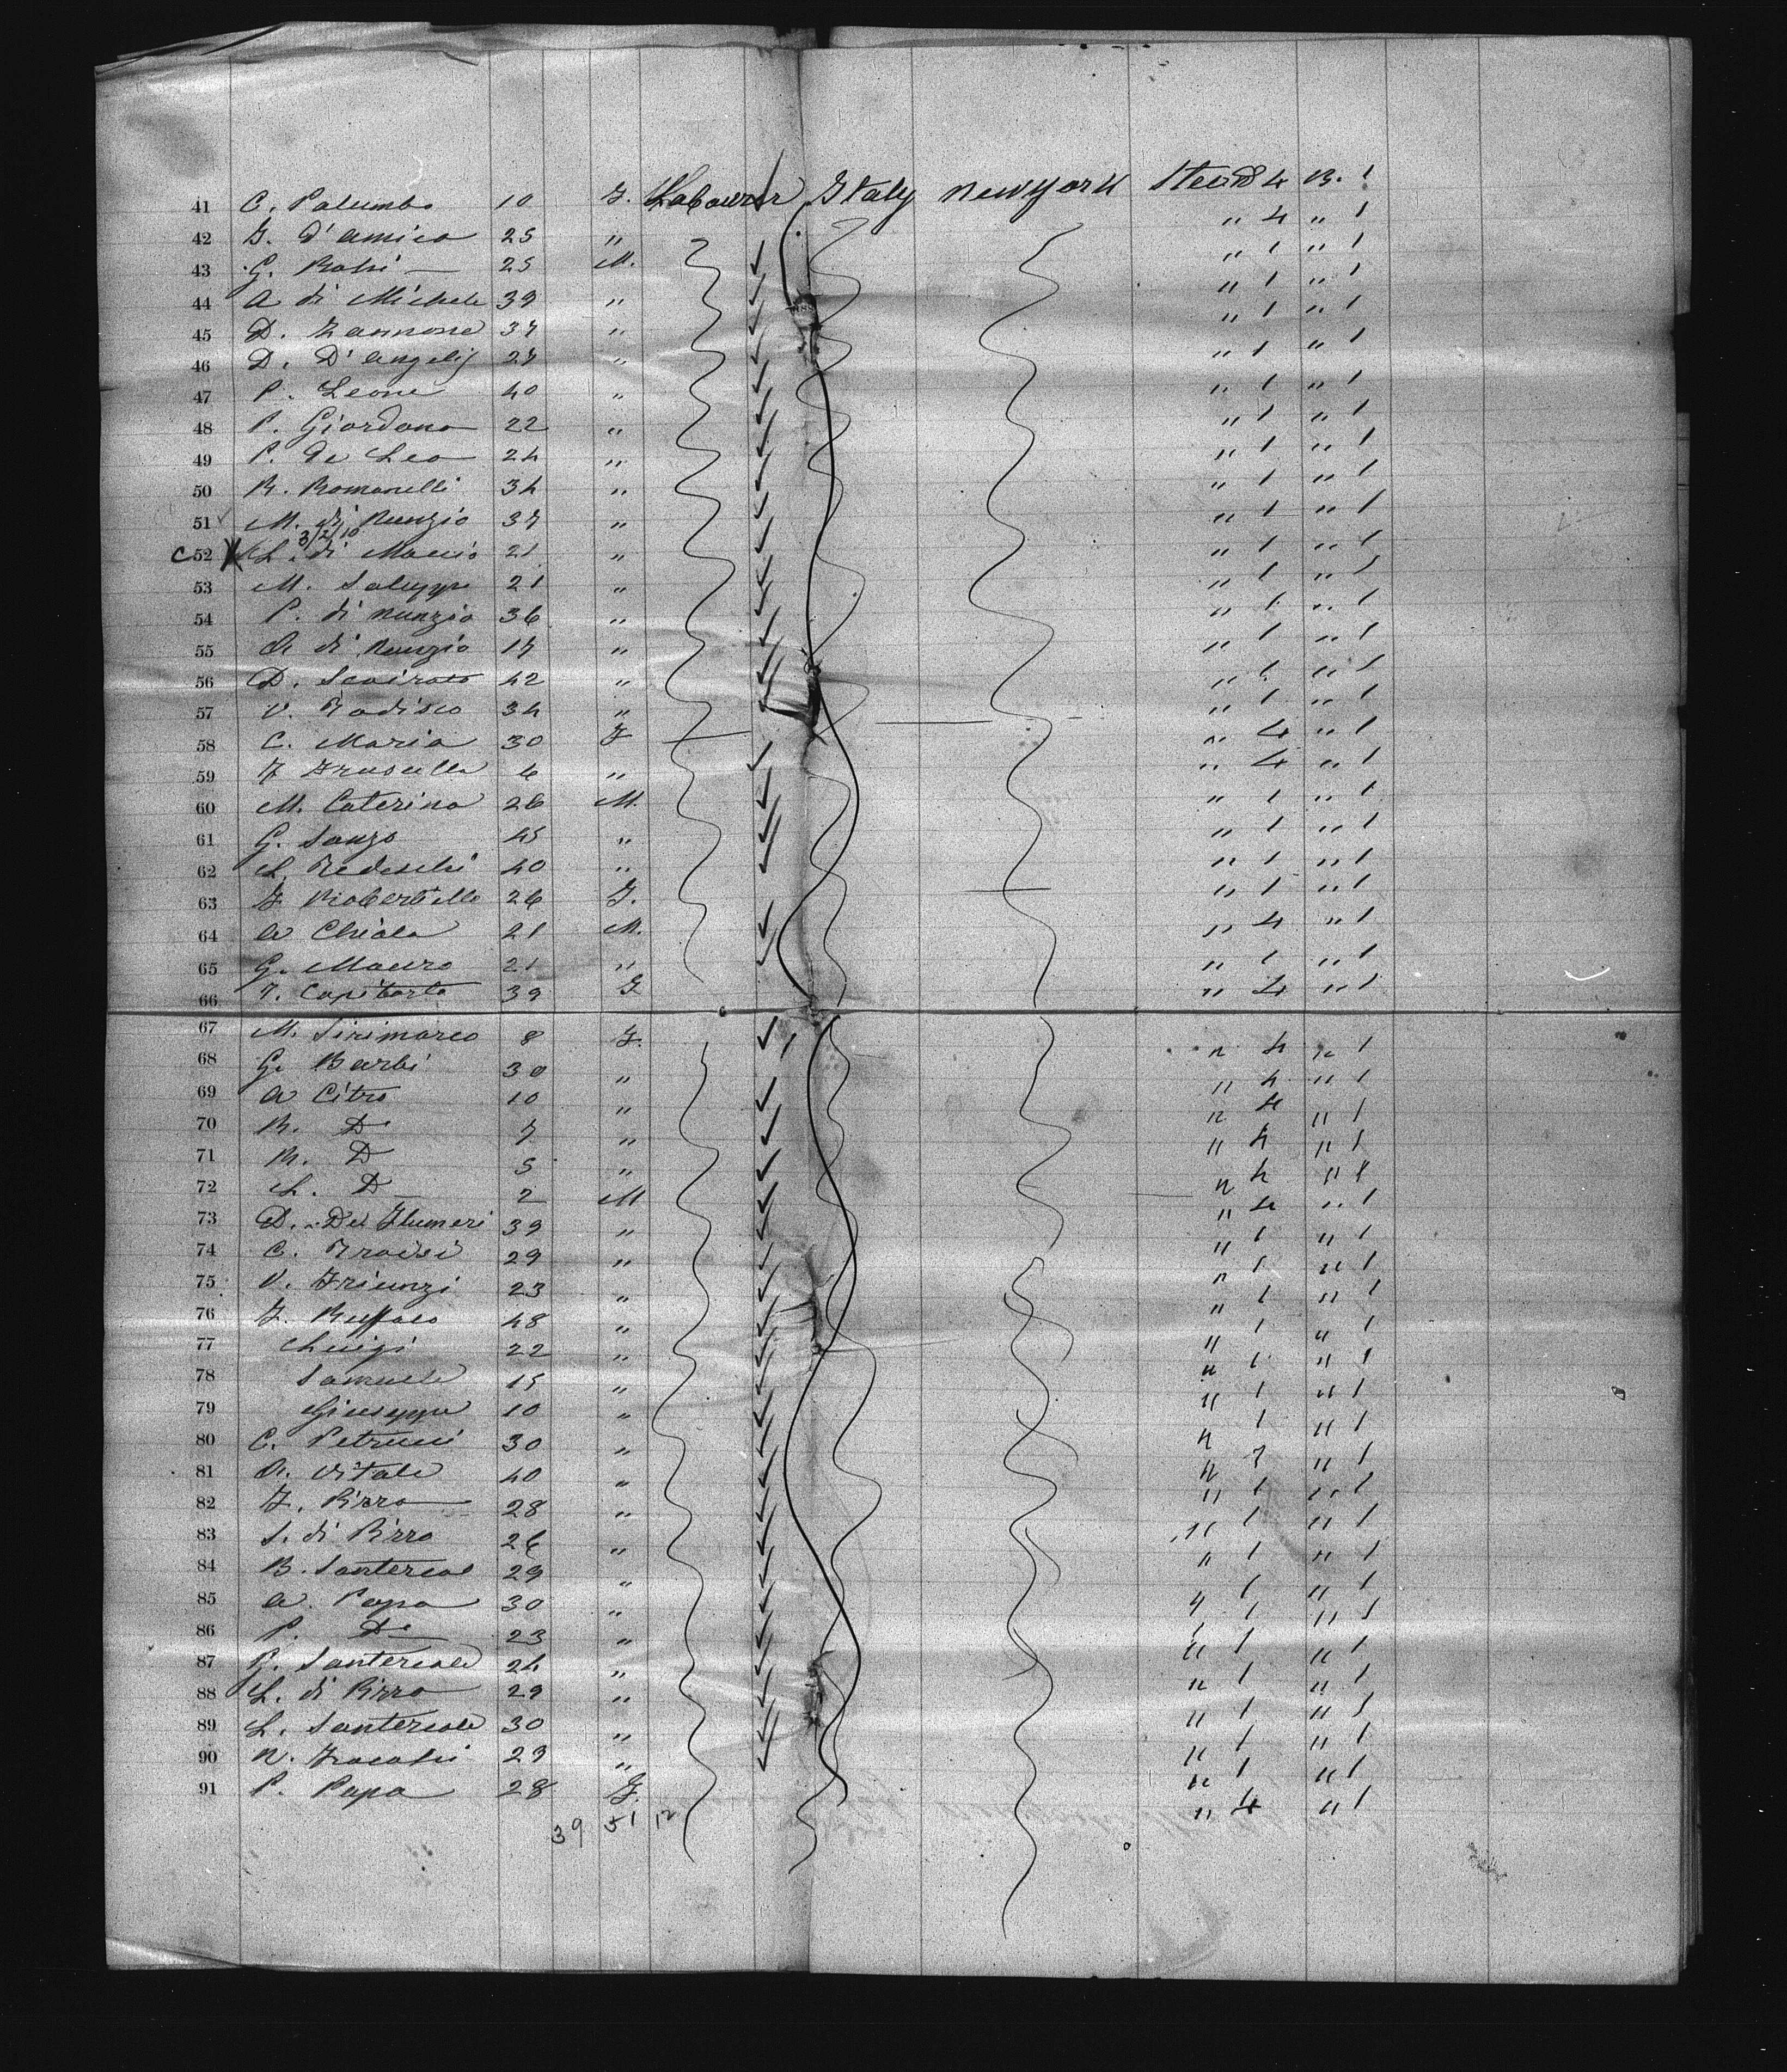 41 C. Palumbo 10 F. Labourer Italy New York Steer 4 B. 1
42 F. D'amico 25 " " 4 " 1
43 G. Rossi — 25 M. " 1 " 1
44 A di Michele 39 " " 1 " 1
45 D. Zannone 37 " " 1 " 1
46 D. D'angelis 27 " " 1 " 1
47 P. Leone 40 " " 1 " 1
48 P. Giordano 22 " " 1 " 1
49 P. De Leo 24 " " 1 " 1
50 R. Romanelli 34 " " 1 " 1
51 M. di Nunzio 37 " " 1 " 1
3/2/10
C 52 X L. di Maccio 21 " " 1 " 1
53 M. 21 " " 1 " 1
54 P. di Nunzio 36 " " 1 " 1
55 A di Nunzio 17 " " 1 " 1
56 D. 42 " " 1 " 1
57 V. Tadisco 34 " " 1 " 1
58 C. Maria 30 F " 4 " 1
59 F 6 " " 4 " 1
60 M. Caterina 26 M. " 1 " 1
61 G. Sanzo 45 " " 1 " 1
62 L. Tedeschi 40 " " 1 " 1
63 F. Robertello 26 F. " 1 " 1
64 A Chiola 21 M. " 4 " 1
65 G. Mauro 21 " " 1 " 1
66 T. 39 F " 4 " 1
67 M. Sirimarco 8 F. " 4 " 1
68 G. Barbi 30 " " 4 " 1
69 A Citro 10 " " 4 " 1
70 R. Do 7 " " 4 " 1
71 M. D 5 " " 4 " 1
72 L. D 2 M " 4 " 1
73 D. De Flumeri 39 " " 1 " 1
74 C. Troisi 29 " " 1 " 1
75 V. Frienzi 23 " " 1 " 1
76 F. Ruffalo 48 " " 1 " 1
77 Luigi 22 " " 1 " 1
78 Samuele 15 " " 1 " 1
79 Giuseppe 10 " " 1 " 1
80 C. Petrucci 30 " " " 1
81 A. Vitale 40 " " 1 " 1
82 F. Pirro 28 " " 1 " 1
83 S. di Pirro 26 " " 1 " 1
84 B. Santercole 29 " " 1 " 1
85 A. Papa 30 " " 1 " 1
86 P. Do 23 " " 1 " 1
87 G. Santercole 24 " " 1 " 1
88 L. di Pirro 29 " " 1 " 1
89 L. Santercole 30 " " 1 " 1
90 N. 29 " " 1 " 1
91 P. Papa 28 F. " 4 " 1
39 51 12